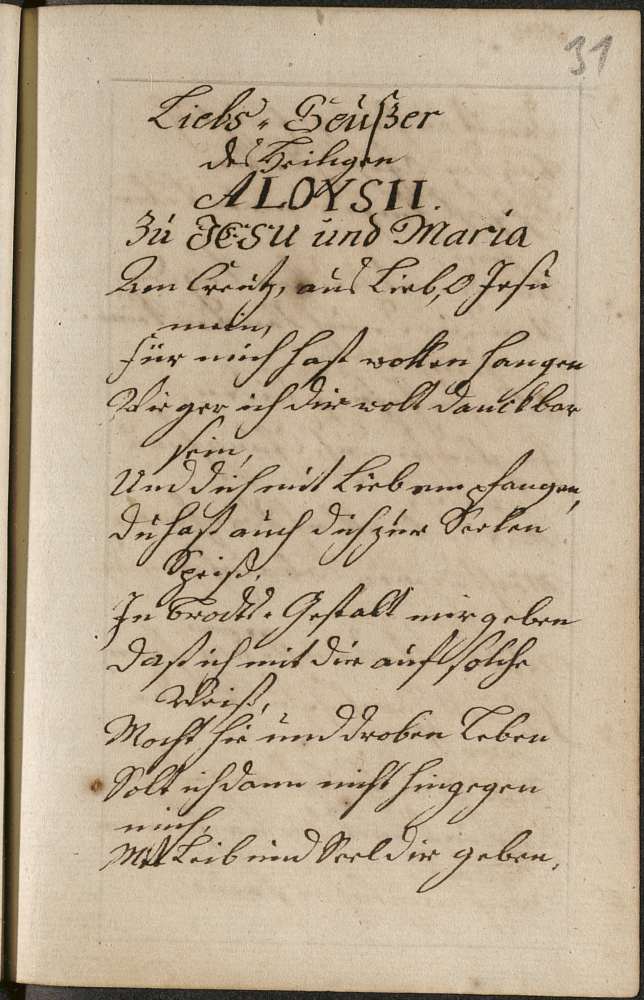 31
Liebs-Seufzer
des Heiligen
ALOYSII.
Zu JESU und Maria
Am Creutz, aus Lieb, O Jesu
mein,
für mich hast wollen hangen
Wie ger ich dir wolt danckbar
sein,
Und dich mit Lieb empfangen,
Du hast auch dich zur Seelen
Speiß,
In brodts-Gestalt mir geben
Daß ich mit dir auf solche
Weiß,
Möcht hie und droben Leben
Solt ich dann nicht hingegen
mich,
Mit Leib und Seel dir geben,